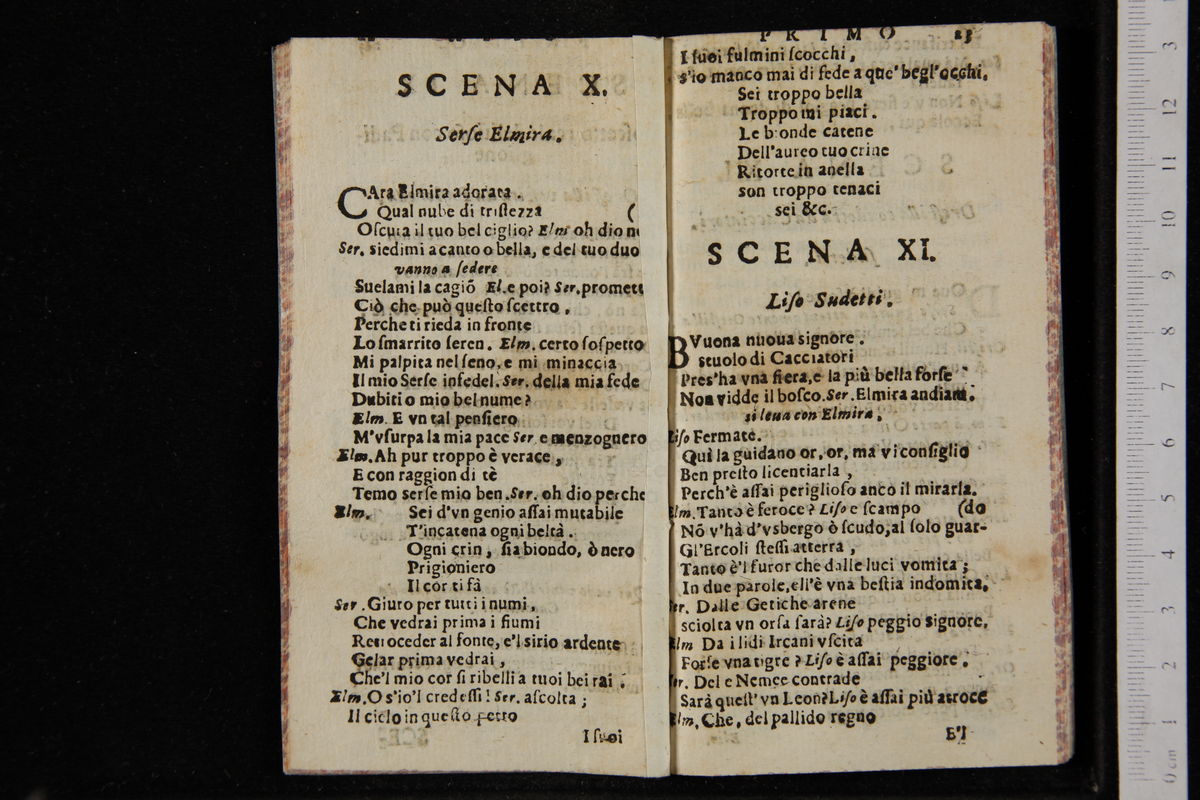 SCENA X.
Serse Elmira.
CAra Elmira adorata.
Qual nube di tristezza (
Oscura il tuo bel ciglio? Elm oh dio
Ser. siedimi a canto o bella, e del tuo duo
vanno a sedere
Suelami la cagiõ El. e poi? Ser. promett
Ciò che può questo scettro,
Perche ti rieda in fronte
Lo smarrito seren. Elm. certo sospetto
Mi palpita nel seno, e mi minaccia
Il mio Serse infedel. Ser. della mia fede
Dubiti o mio bel nume?
Elm. E vn tal pensiero
M'vsurpa la mia pace Ser. e menzognero
Elm. Ah pur troppo è verace,
E con raggion di tè
Temo serse mio ben. Ser. oh dio perche
Elm. Sei d'vn genio assai mutabile
T'incatena ogni beltà.
Ogni crin, sia biondo, ò nero
Prigioniero
Il cor ti fà
Ser. Giuro per tutti i numi,
Che vedrai prima i fiumi
Retroceder al fonte, e'l sirio ardente
Gelar prima vedrai,
Che'l mio cor si ribelli a tuoi bei rai.
Elm. O s'io'l credessi! Ser. ascolta;
Il cielo in questo petto
I suoi
PRIMO 23
I suoi fulmini scocchi,
s'io manco mai di fede a que' begl'occhi.
Sei troppo bella
Troppo mi piaci.
Le bionde catene
Dell'aureo tuo crine
Ritorte in anella
son troppo tenaci
sei &c.
SCENA XI.
Liso Sudetti.
BVuona nuoua signore.
stuolo di Cacciatori
Pres'ha vna fiera, e la più bella forse
Non vidde il bosco. Ser. Elmira andiam.
si leua con Elmira.
Liso Fermate.
Quì la guidano or, or, ma vi consiglio
Ben presto licentiarla,
Perch'è assai periglioso anco il mirarla.
Elm. Tanto è feroce? Liso e scampo (do
Nõ v'hà d'vsbergo ò scudo; al solo guar-
Gl'Ercoli stessi atterra,
Tanto è'l furor che dalle luci vomita;
In due parole, ell'è vna bestia indomita.
Ser. Dalle Getiche arene
sciolta vn orsa sarà? Liso peggio signore.
Elm Da i lidi Ircani vscita
Forse vna tigre? Liso è assai peggiore.
Ser. Dele Nemee contrade
Sarà quest' vn Leon? Liso è assai più atroce
Elm. Che, del pallido regno
E'l